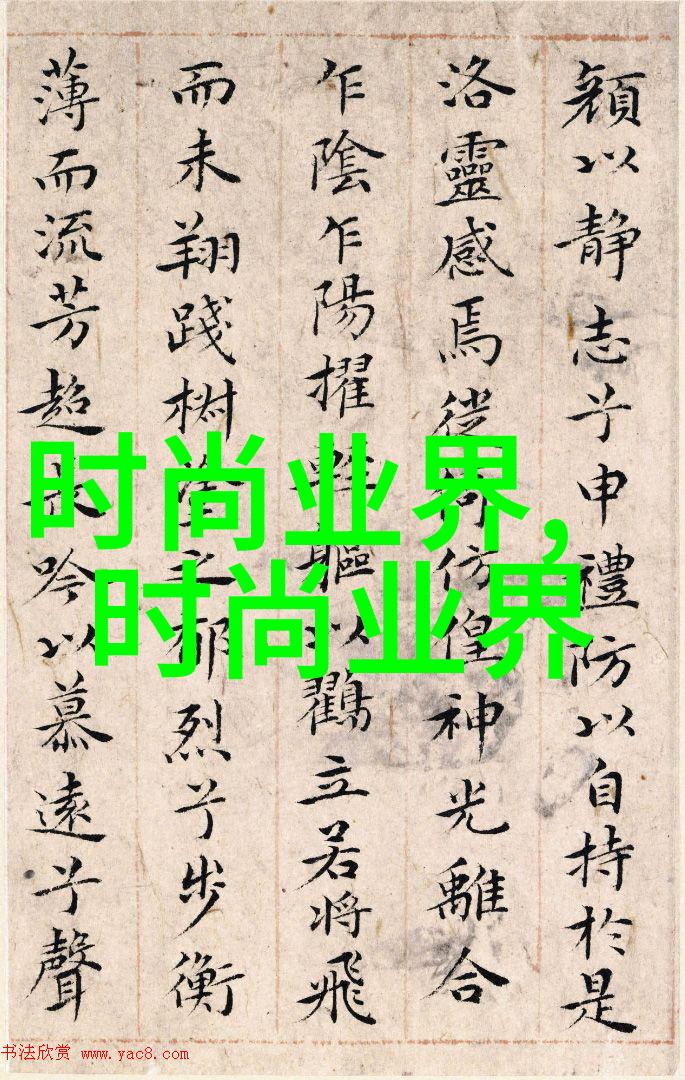 顔以静志兮申禮防以自持於是
洛靈感焉徙倚仿偟神光離合
乍陰乍陽擢輕軀以鸖立若將飛
而未翔踐椒塗之郁烈兮步衡
薄而流芳超長吟以慕遠兮聲
时尚业界,
时尚业界
书法欣赏 www.yac8.com